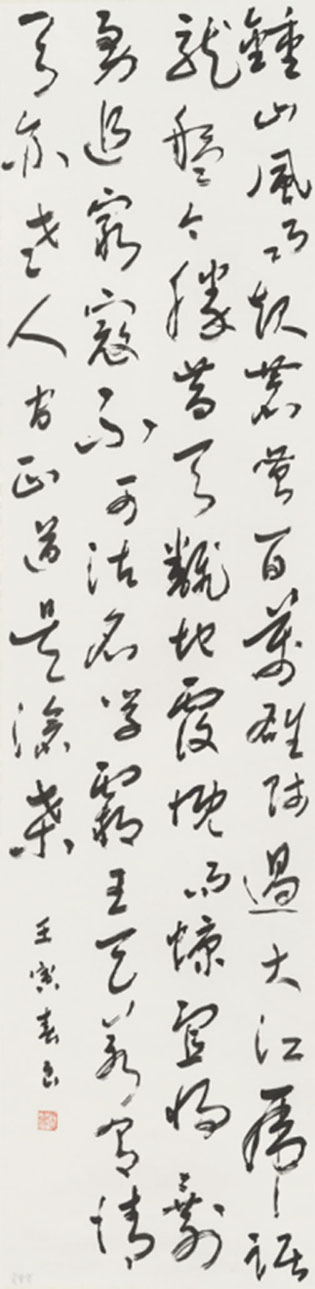 鍾山風雨起蒼黃百萬雄師過大江虎踞
龍盤今勝昔天翻地覆慨而慷宜將剩
勇追窮寇不可沽名學霸王天若有情
天亦老人間正道是滄桑
壬寅春